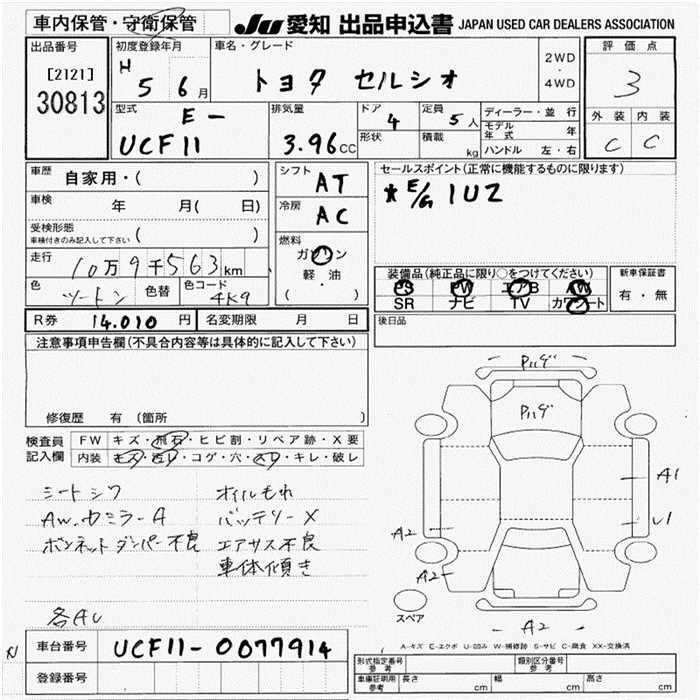 車内保管・守衛保管
JU 愛知 出品申込書 JAPAN USED CAR DEALERS ASSOCIATION
出品番号
[2121]
30813
初度登録年月
H 5 6月
車名・グレード
トヨタ セルシオ
2WD
・
4WD
評価点
3
外装 内装
C C
型式
E-
UCF11
排気量
3.96cc
ドア
4
形状
定員
5人
積載
kg
ディーラー・並行
モデル年式 年
ハンドル 左・右
車歴 自家用・( )
車検 年 月(日)
受検形態
車検付きのみ記入して下さい ( )
走行 10万9千563km
色 ツートン 色替 色コード 4K9
シフト AT
冷房 AC
燃料
ガソリン
軽・油
( )
セールスポイント(正常に機能するものに限ります)
* E/G 1UZ
装備品(純正品に限り○をつけてください)
PS PW エアB AW
SR ナビ TV カワシート
新車保証書
有・無
R券 14.010円 名変期限 月 日
後日品
注意事項申告欄(不具合内容等は具体的に記入して下さい)
修復歴 有 〔箇所 〕
検査員記入欄
FW キズ・飛石・ヒビ割・リペア跡・X要
内装 キズ・汚レ・コゲ・穴・スレ・キレ・破レ
シートシワ オイルもれ
AW.カミラーA バッテリーX
ボンネットダンパー不良 エアサス不良
車体傾き
各AU
Pハゲ
Pハゲ
A1
U1
A2
A2
A2
スペア
A-キズ E-エクボ U-凹み W-補修跡 S-サビ C-腐食 XX-交換済
N 車台番号 UCF11-0077914
登録番号
形式指定番号 参考
類別区分番号 参考
車庫証明用 参考 長さ cm 幅 cm 高さ cm